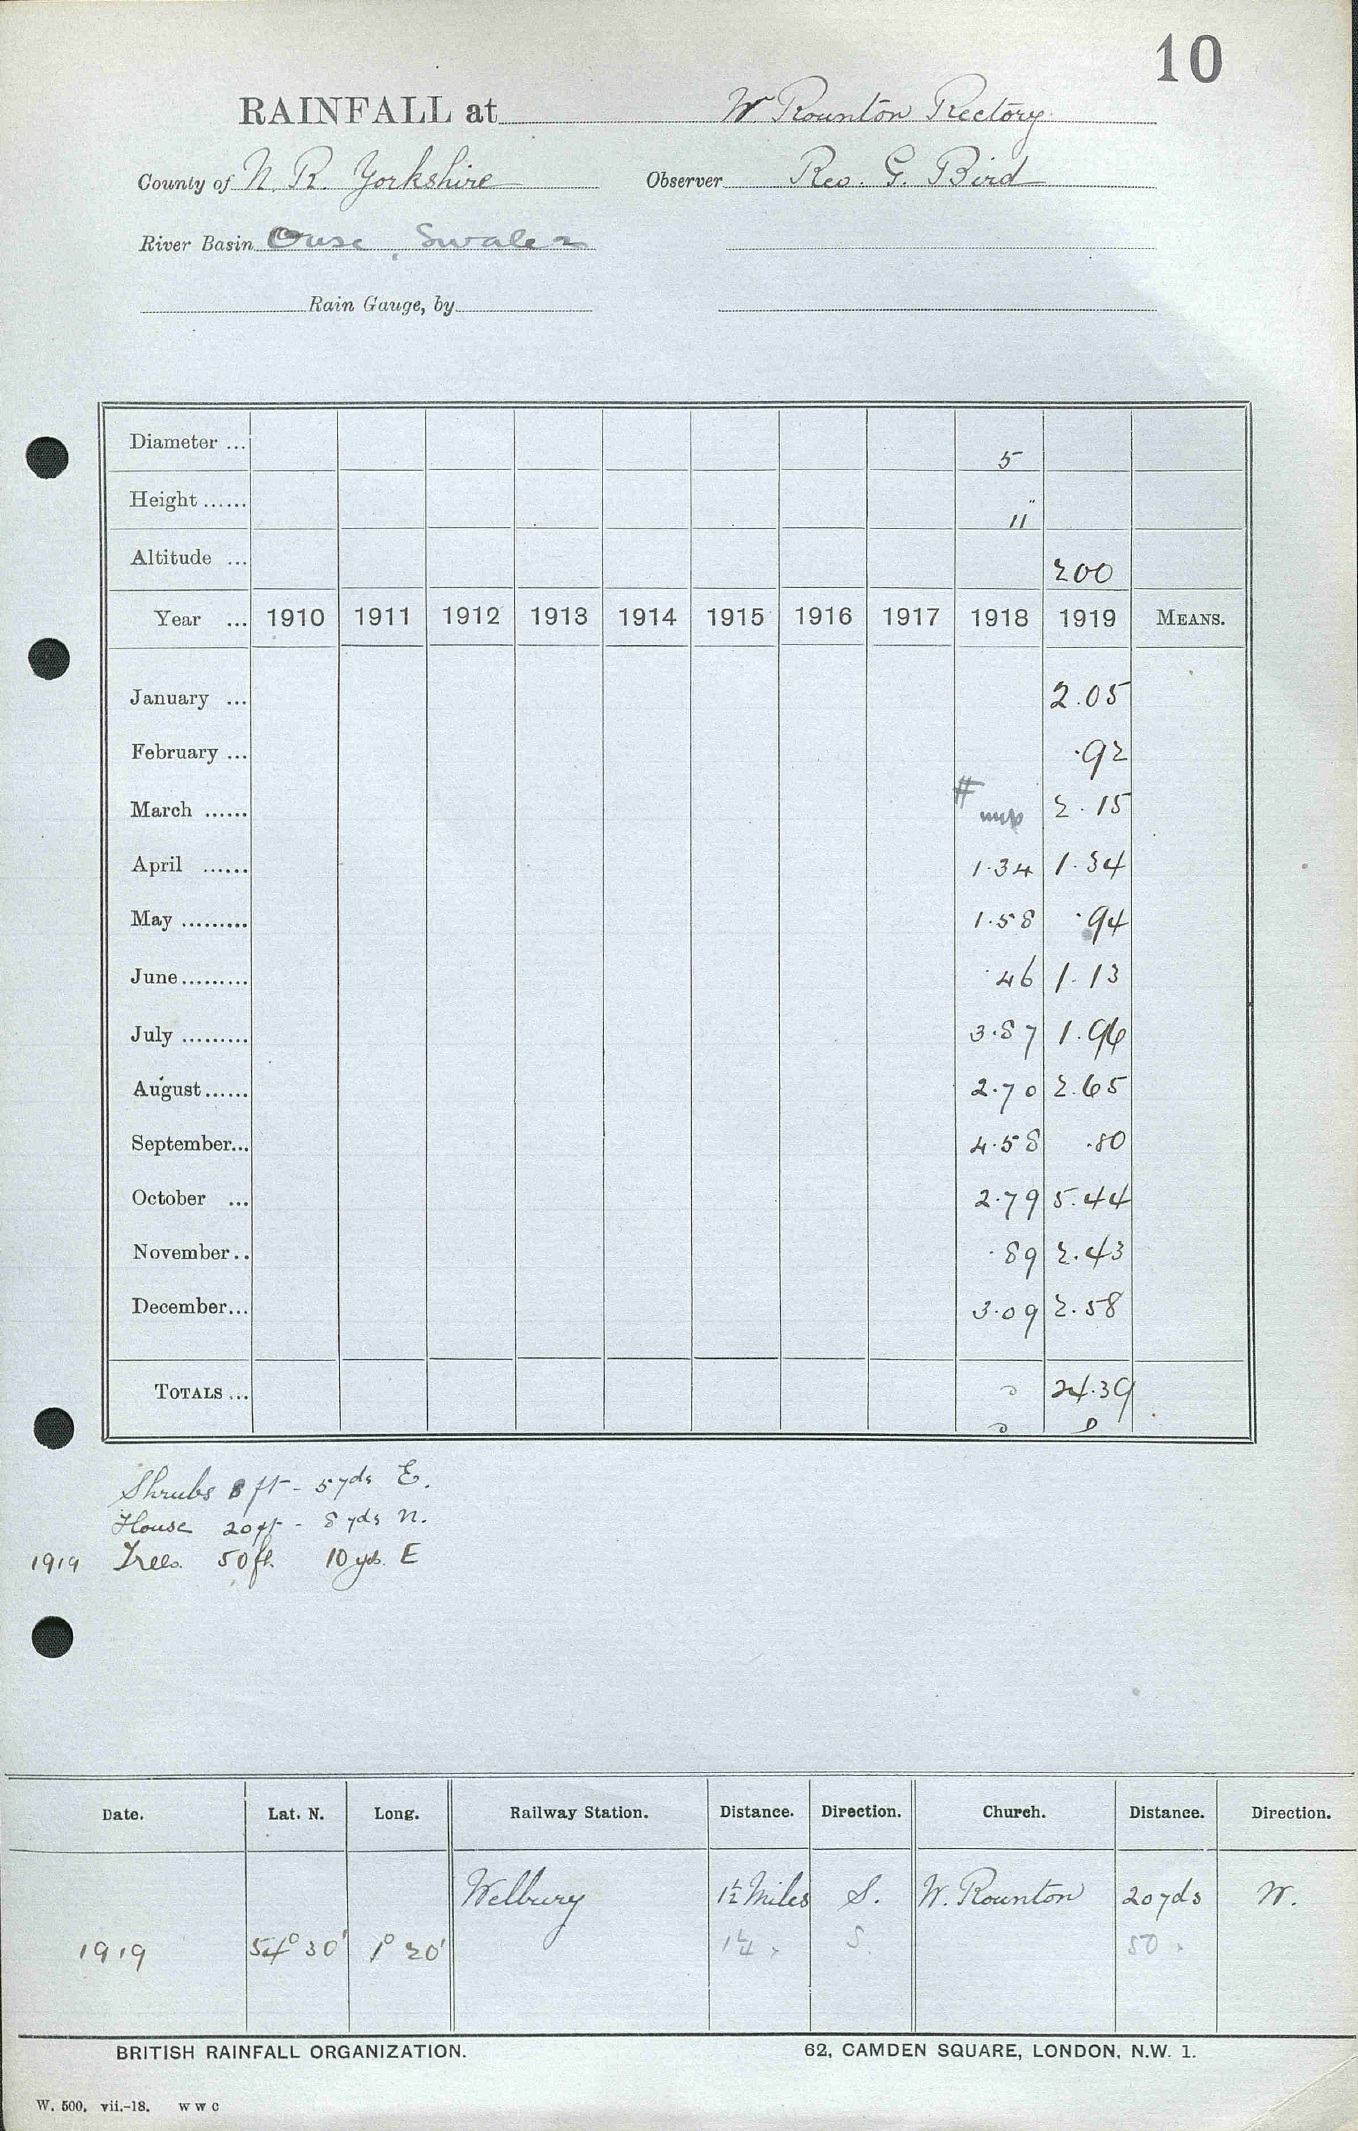 10
RAINFALL at W Rounton Rectory.
County of N. R. Yorkshire Observer Rev. G. Bird
River Basin Ouse, Swale
Rain Gauge, by
Diameter ... 5
Height ...... 11"
Altitude ... 200
Year ... 1910 1911 1912 1913 1914 1915 1916 1917 1918 1919 MEANS.
January ... 2.05
February ... .92
March ...... # 2.15
April ...... 1.34 1.34
May ......... 1.58 .94
June ......... .46 1.13
July ......... 3.87 1.96
August ...... 2.70 2.65
September... 4.58 .80
October ... 2.79 5.44
November .. .89 2.43
December... 3.09 2.58
TOTALS ... 24.39
Shrubs 8 ft - 5 yds E.
House 20 ft - 8 yds N.
1919 Trees. 50 ft. 10 yds. E
Date. Lat. N. Long. Railway Station. Distance. Direction. Church. Distance. Direction.
Welbury 1½ Miles S. W. Rounton 20 yds W.
1919 54° 30' 1° 20' 1¼ " S. 50 "
BRITISH RAINFALL ORGANIZATION. 62, CAMDEN SQUARE, LONDON, N.W. 1.
W. 500. vii.-18. W W C